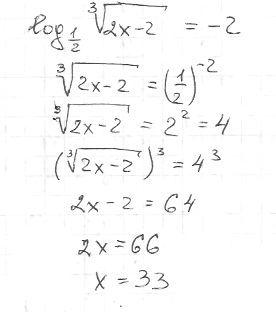 log_{1/2} ∛(2x-2) = -2
∛(2x-2) = (1/2)^{-2}
∛(2x-2) = 2^2 = 4
(∛(2x-2))^3 = 4^3
2x-2 = 64
2x = 66
x = 33